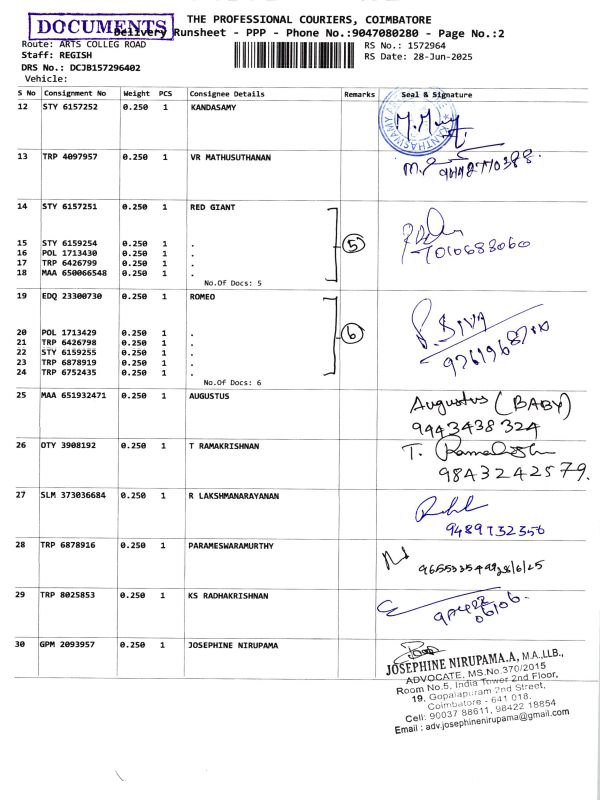 DOCUMENTS
THE PROFESSIONAL COURIERS, COIMBATORE
Delivery Runsheet - PPP - Phone No.:9047080280 - Page No.:2
Route: ARTS COLLEG ROAD
RS No.: 1572964
Staff: REGISH
RS Date: 28-Jun-2025
DRS No.: DCJB157296402
Vehicle:
S No Consignment No Weight PCS Consignee Details Remarks Seal & Signature
12 STY 6157252 0.250 1 KANDASAMY
13 TRP 4097957 0.250 1 VR MATHUSUTHANAN
14 STY 6157251 0.250 1 RED GIANT
5
7010688060
15 STY 6159254 0.250 1 .
16 POL 1713430 0.250 1 .
17 TRP 6426799 0.250 1 .
18 MAA 650066548 0.250 1 .
No.Of Docs: 5
19 EDQ 23300730 0.250 1 ROMEO
6
P. SIVA
20 POL 1713429 0.250 1 .
21 TRP 6426798 0.250 1 .
22 STY 6159255 0.250 1 .
23 TRP 6878919 0.250 1 .
24 TRP 6752435 0.250 1 .
No.Of Docs: 6
25 MAA 651932471 0.250 1 AUGUSTUS Augustus (BABY)
9443438324
26 OTY 3908192 0.250 1 T RAMAKRISHNAN T.
9843242579.
27 SLM 373036684 0.250 1 R LAKSHMANARAYANAN
9489732356
28 TRP 6878916 0.250 1 PARAMESWARAMURTHY
28/6/25
29 TRP 8025853 0.250 1 KS RADHAKRISHNAN
30 GPM 2093957 0.250 1 JOSEPHINE NIRUPAMA
JOSEPHINE NIRUPAMA.A, M.A.,LL.B.,
ADVOCATE, MS.No.370/2015
Room No.5, India Tower 2nd Floor,
19, Gopalapuram 2nd Street,
Coimbatore - 641 018.
Cell: 90037 88611, 98422 18854
Email : adv.josephinenirupama@gmail.com